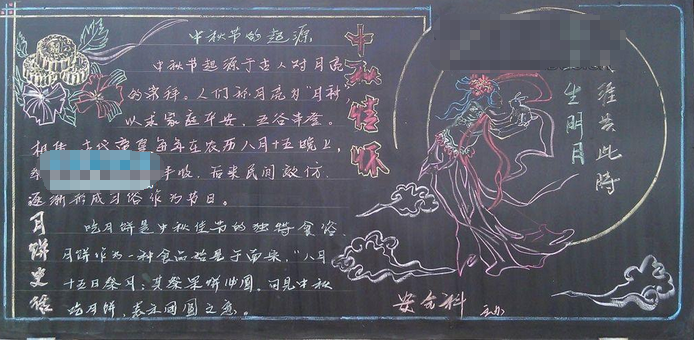 中秋节的起源
中秋节起源于古人对月亮
的崇拜。人们称月亮为"月神",
以求家庭平安、五谷丰登。
相传 古代 每年在农历八月十五晚上,
后来民间效仿,
逐渐形成习俗作为节日。
中秋情怀
月饼史话
吃月饼是中秋佳节的独特食俗
月饼作为一种食品始是于南宋。"八月
十五日祭月,其祭果饼必圆。"可见中秋
吃月饼,表示团圆之意。
生明月
涯共此時
安全科 办